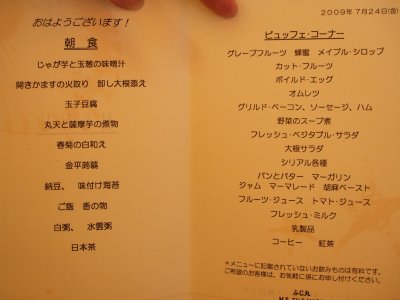 おはようございます！
朝 食
じゃが芋と玉葱の味噌汁
開きかますの火取り 卸し大根添え
玉子豆腐
丸天と薩摩芋の煮物
春菊の白和え
金平蒟蒻
納豆、 味付け海苔
ご飯 香の物
白粥、 水雲粥
日本茶
2009年 7月24日(金)
ビュッフェ・コーナー
グレープフルーツ 蜂蜜 メイプル・シロップ
カット・フルーツ
ボイルド・エッグ
オムレツ
グリルド・ベーコン、ソーセージ、ハム
野菜のスープ煮
フレッシュ・ベジタブル・サラダ
大根サラダ
シリアル各種
パンとバター マーガリン
ジャム マーマレード 胡麻ペースト
フルーツ・ジュース トマト・ジュース
フレッシュ・ミルク
乳製品
コーヒー 紅茶
＊メニューに記載されていないお飲みものは有料です。
ご希望のお客様は、お気軽に係にお申し付けください。
ふじ丸